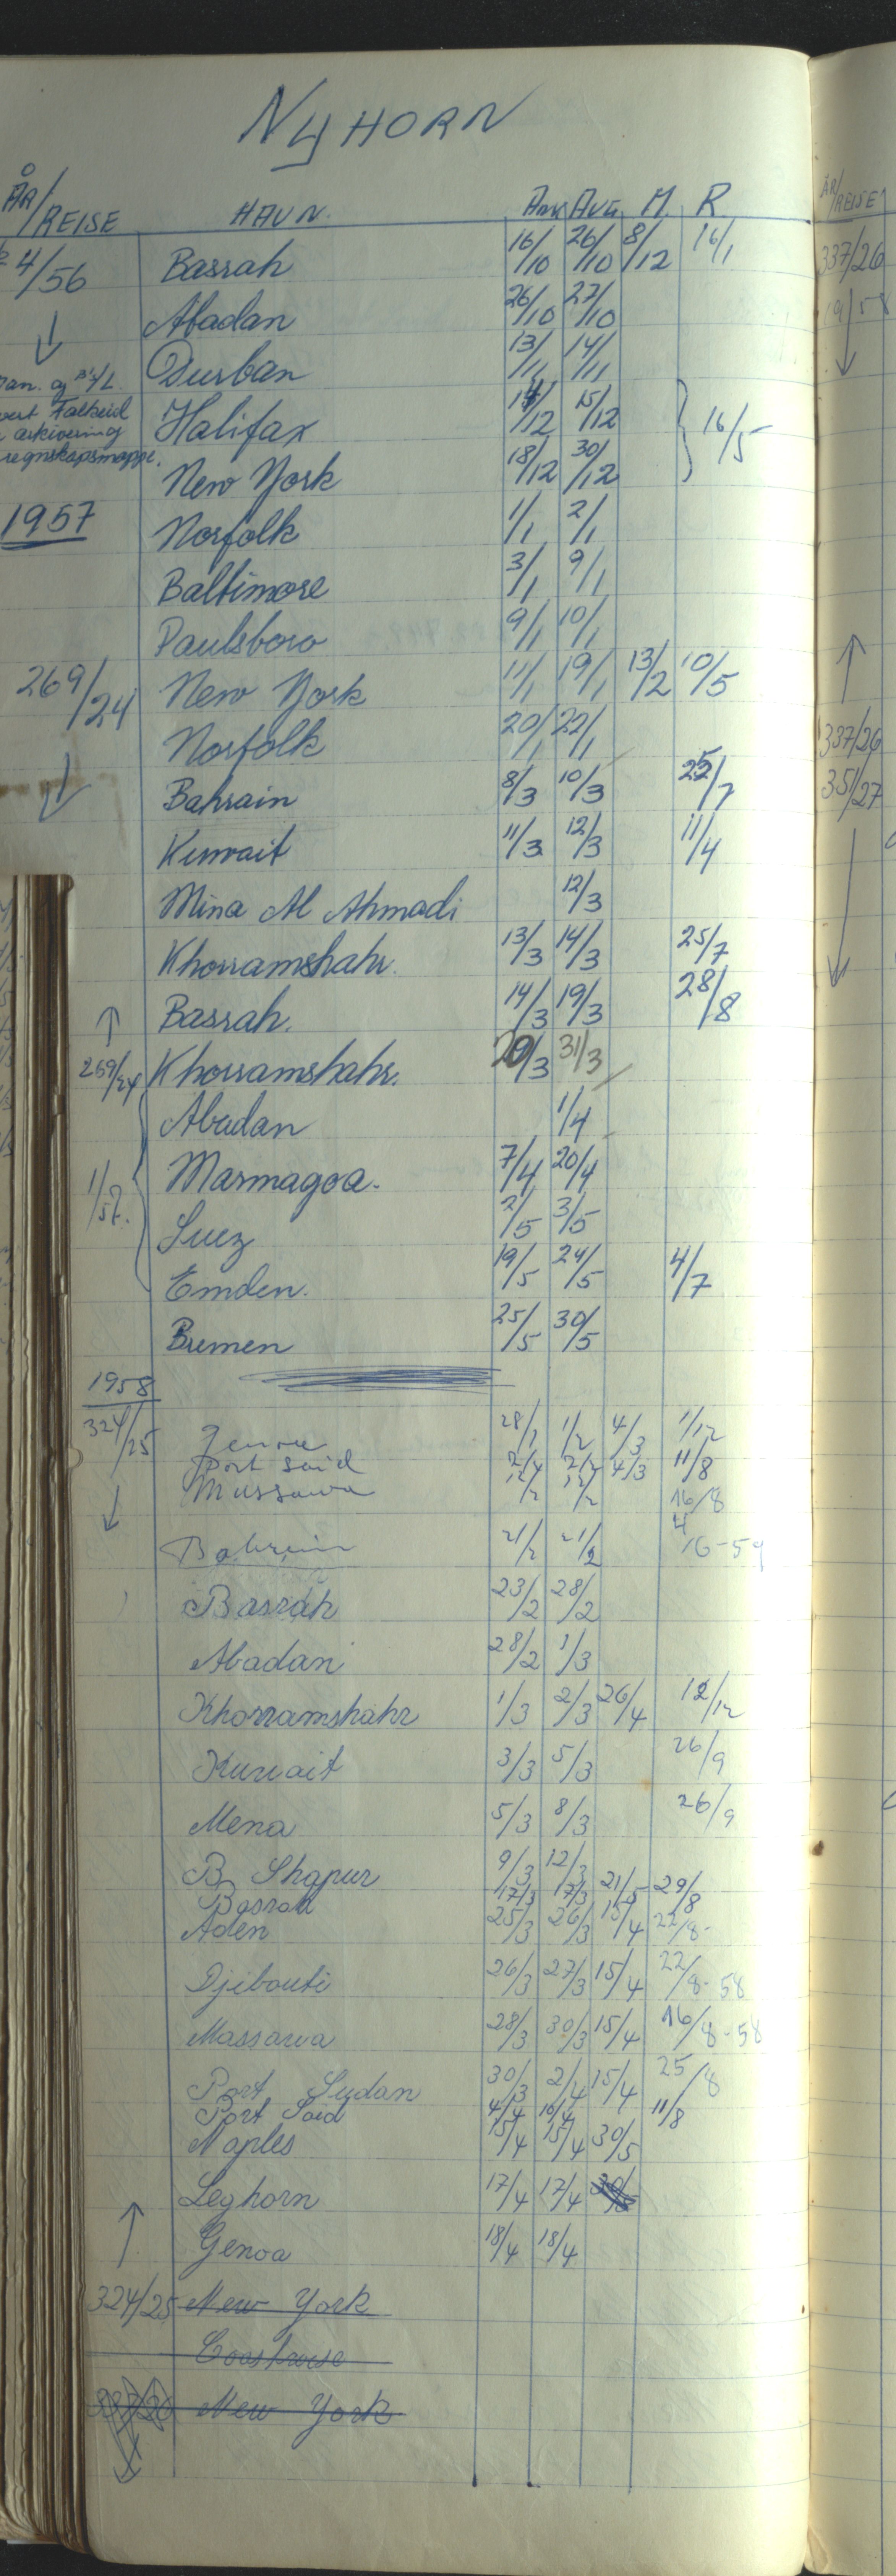 NYHORN
ÅR/REISE HAVN. Ank AVG M R
4/56 Basrah 16/10 26/10 8/12 16/1
↓ Abadan 26/10 27/10
Durban 13/11 14/11
og B/L.
Falkeid Halifax 14/12 15/12 } 16/5
arkivering
regnskapsmappe. New York 18/12 30/12
1957 Norfolk 1/1 2/1
Baltimore 3/1 9/1
Paulsboro 9/1 10/1
269/24 New York 11/1 19/1 13/2 10/5
↓ Norfolk 20/1 22/1
Bahrain 8/3 10/3
Kuwait 11/3 12/3 11/4
Mina Al Ahmadi 12/3
Khorramshahr. 13/3 14/3 25/7
↑ Basrah. 14/3 19/3 28/8
269/24 Khorramshahr. 31/3
Abadan 1/4
1/57. Marmagoa. 7/4 20/4
Suez 2/5 3/5
Emden. 19/5 24/5 4/7
Bremen 25/5 30/5
1958
324/25 Genoa 28/1 1/2 4/3 1/12
Port Said 4/3 11/8
↓ Massawa 12/2 12/2 16/8
Bahrein 21/2 21/2 16-59
Basrah 23/2 28/2
Abadan 28/2 1/3
Khorramshahr 1/3 2/3 26/4 12/12
Kuwait 3/3 5/3 26/9
Mena 5/3 8/3 26/9
B Shapur 9/3 12/3
Basrah 17/3 17/3 21/5 29/8
Aden 25/3 26/3 15/4 22/8-
Djibouti 26/3 27/3 15/4 22/8-58
Massawa 28/3 30/3 15/4 16/8-58
Port Sudan 30/3 2/4 15/4 25/8
Port Said 4/4 10/4 11/8
Naples 15/4 15/4 30/5
Leghorn 17/4 17/4
↑ Genoa 18/4 18/4
324/25 New York
Coastwise
New York
ÅR/REISE
337/26
19/58
↓
↑
337/26
351/27
↓